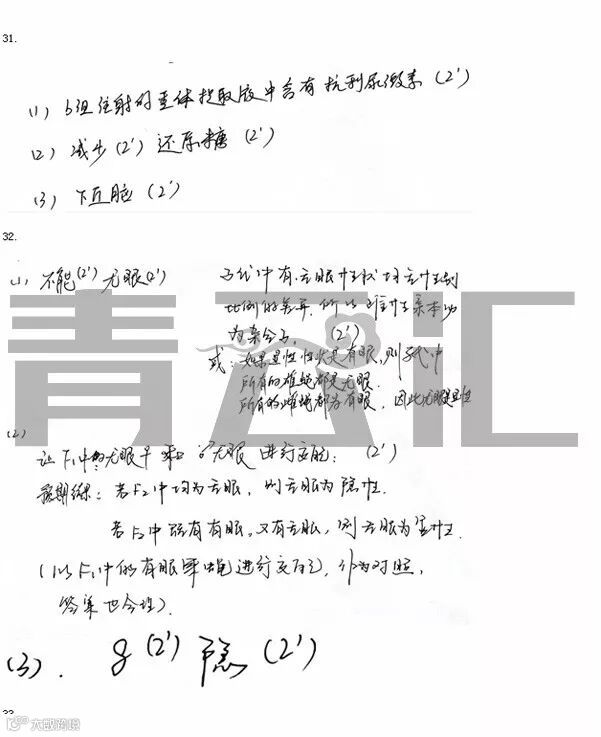 31.
(1) b组注射的垂体提取液中含有抗利尿激素 (2')
(2) 减少 (2') 还原糖 (2')
(3) 下丘脑 (2')
32.
(1) 不能(2') 无眼(2') 子代中有、无眼性状均无性别
比例的差异,所以雌性亲本必
为杂合子, (2')
或:如果显性性状是有眼,则子代中
所有的雄蝇都是无眼.
所有的雌蝇都为有眼,因此无眼是显性
(2)
让F₁中的无眼♀ ♂无眼 进行交配; (2')
预期结果:若F₂中均为无眼,则无眼为隐性.
若F₂中既有有眼,又有无眼,则无眼为显性.
(以F₁中的有眼果蝇进行交配,作为对照,
答案也合理).
(3). 8 (2') 隐 (2')
青云汇
大数跨境